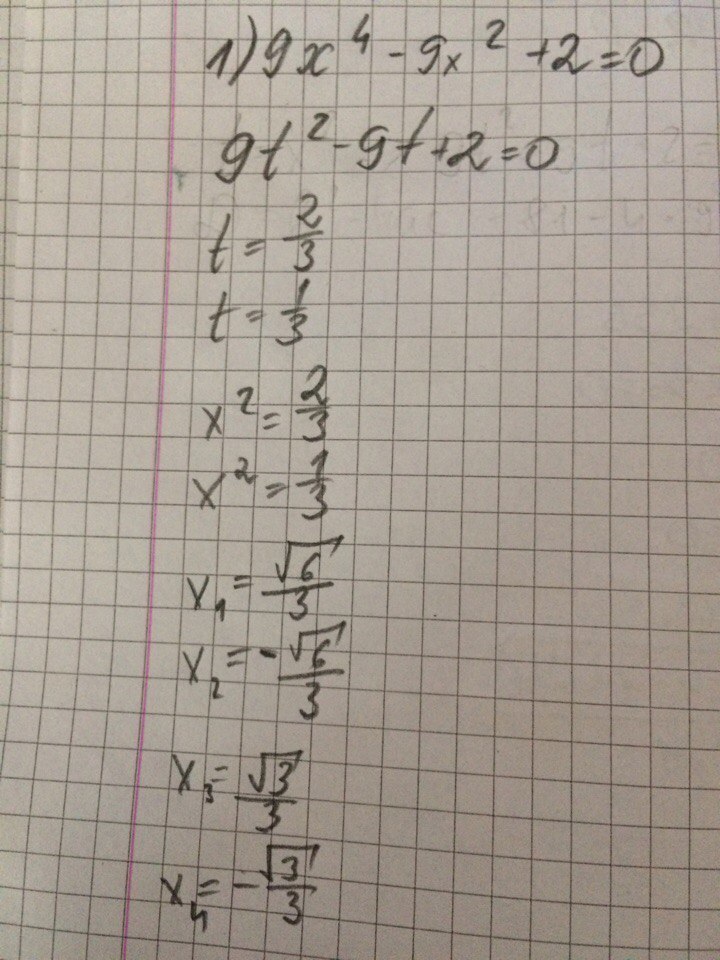 1) 9x⁴ - 9x² + 2 = 0
9t² - 9t + 2 = 0
t = 2/3
t = 1/3
x² = 2/3
x² = 1/3
x₁ = √6/3
x₂ = -√6/3
x₃ = √3/3
x₄ = -√3/3